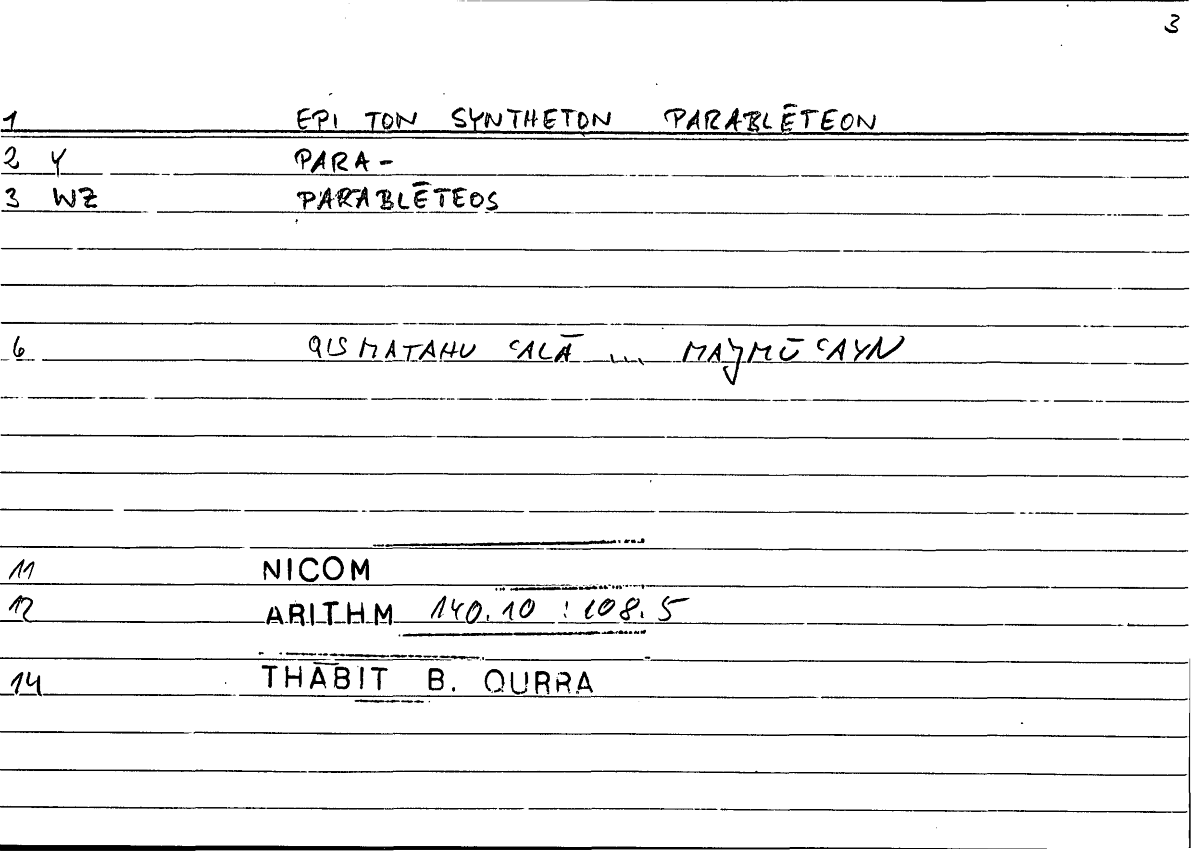 3
1 EPI TON SYNTHETON PARABLĒTEON
2 Y PARA-
3 WZ PARABLĒTEOS
6 QISMATAHU ʿALĀ ... MAJMŪʿAYN
11 NICOM
12 ARITHM 140.10 : 108.5
14 THĀBIT B. QURRA